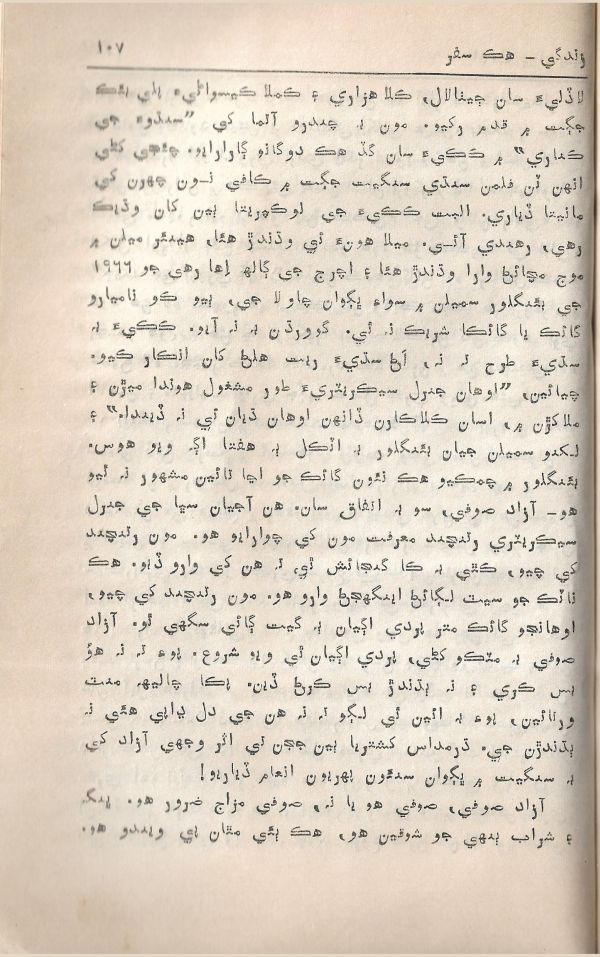 زندگي - هڪ سفر ۱۰۷
لاڏليءَ سان جيٺالال، ڪلا هزاري ۽ ڪملا ڪيسواڻيءَ پلي بئڪ
جڳت ۾ قدم رکيو. مون ٻه چندرو آتما کي ”سنڌوءَ جي
ڪناري“ ۾ ڪڪيءَ سان گڏ هڪ دوگانو ڳارايو. چئجي کڻي
انهن ٽن فلمن سنڌي سنگيت جڳت ۾ ڪافي نون چهرن کي
مانيتا ڏياري. البت ڪڪيءَ جي لوڪپريتا ٻين کان وڌيڪ
رهي، رهندي آئي. ميلا هونءَ ئي وڌندڙ هئا، هينئر ميلن ۾
موج مچائڻ وارا وڌندڙ هئا ۽ اچرج جي ڳالهه اها رهي جو ۱۹۶۶
جي بئنگلور سميلن ۾ سواءِ ڀڳوان چاولا جي، ٻيو ڪو ناميارو
ڳائڪ يا ڳائڪا شريڪ نہ ٿي. گوورڌن بہ نہ آيو. ڪڪيءَ بہ
سڌيءَ طرح نہ نہ، اڻ سڌيءَ ريت هلڻ کان انڪار ڪيو.
چيائين، ”اوهان جنرل سيڪريٽريءَ طور مشغول هوندا ميڙن ۽
ملاکڙن ۾، اسان ڪلاڪارن ڏانهن اوهان ڌيان ئي نہ ڏيندا.“ ۽
لکنو سميلن جيان بئنگلور بہ اٽڪل ٻہ هفتا اڳہ ويو هوس.
بئنگلور ۾ چمڪيو هڪ نئون ڳائڪ جو اڃا تائين مشهور نہ ٿيو
هو- آزاد صوفي، سو بہ اتفاق سان. هن آجيان سڀا جي جنرل
سيڪريٽري رئچند معرفت مون کي چوارايو هو. مون رئچند
کي چيو، ڪٿي بہ ڪا گنجائش ٿي، تہ هن کي وارو ڏبو. هڪ
ناٽڪ جو سيٽ لڳائڻ ايگهجڻ وارو هو. مون رئچند کي چيو،
اوهانجو ڳائڪ متر پردي اڳيان بہ گيت ڳائي سگهي ٿو. آزاد
صوفي بہ مٽڪو کڻي، پردي اڳيان ئي ويو شروع. پوءِ نہ نہ هؤ
بس ڪري ۽ نہ ٻڌندڙ بس ڪرڻ ڏين. پڪا چاليهہ منٽ
ورتائين، پوءِ بہ ائين ئي لڳو تہ نہ هن جي دل ڍاپي هئي نہ
ٻڌندڙن جي. ڌرمداس کشتريا ٻين ججن ئي اثر وجهي آزاد کي
بہ سنگيت ۾ ڀڳوان سنئون پهريون انعام ڏياريو!
آزاد صوفي، صوفي هو يا نہ، صوفي مزاج ضرور هو. ڀنگ
۽ شراب ٻنهي جو شوقين هو، هڪ ٻئي مٿان پي ويندو هو.